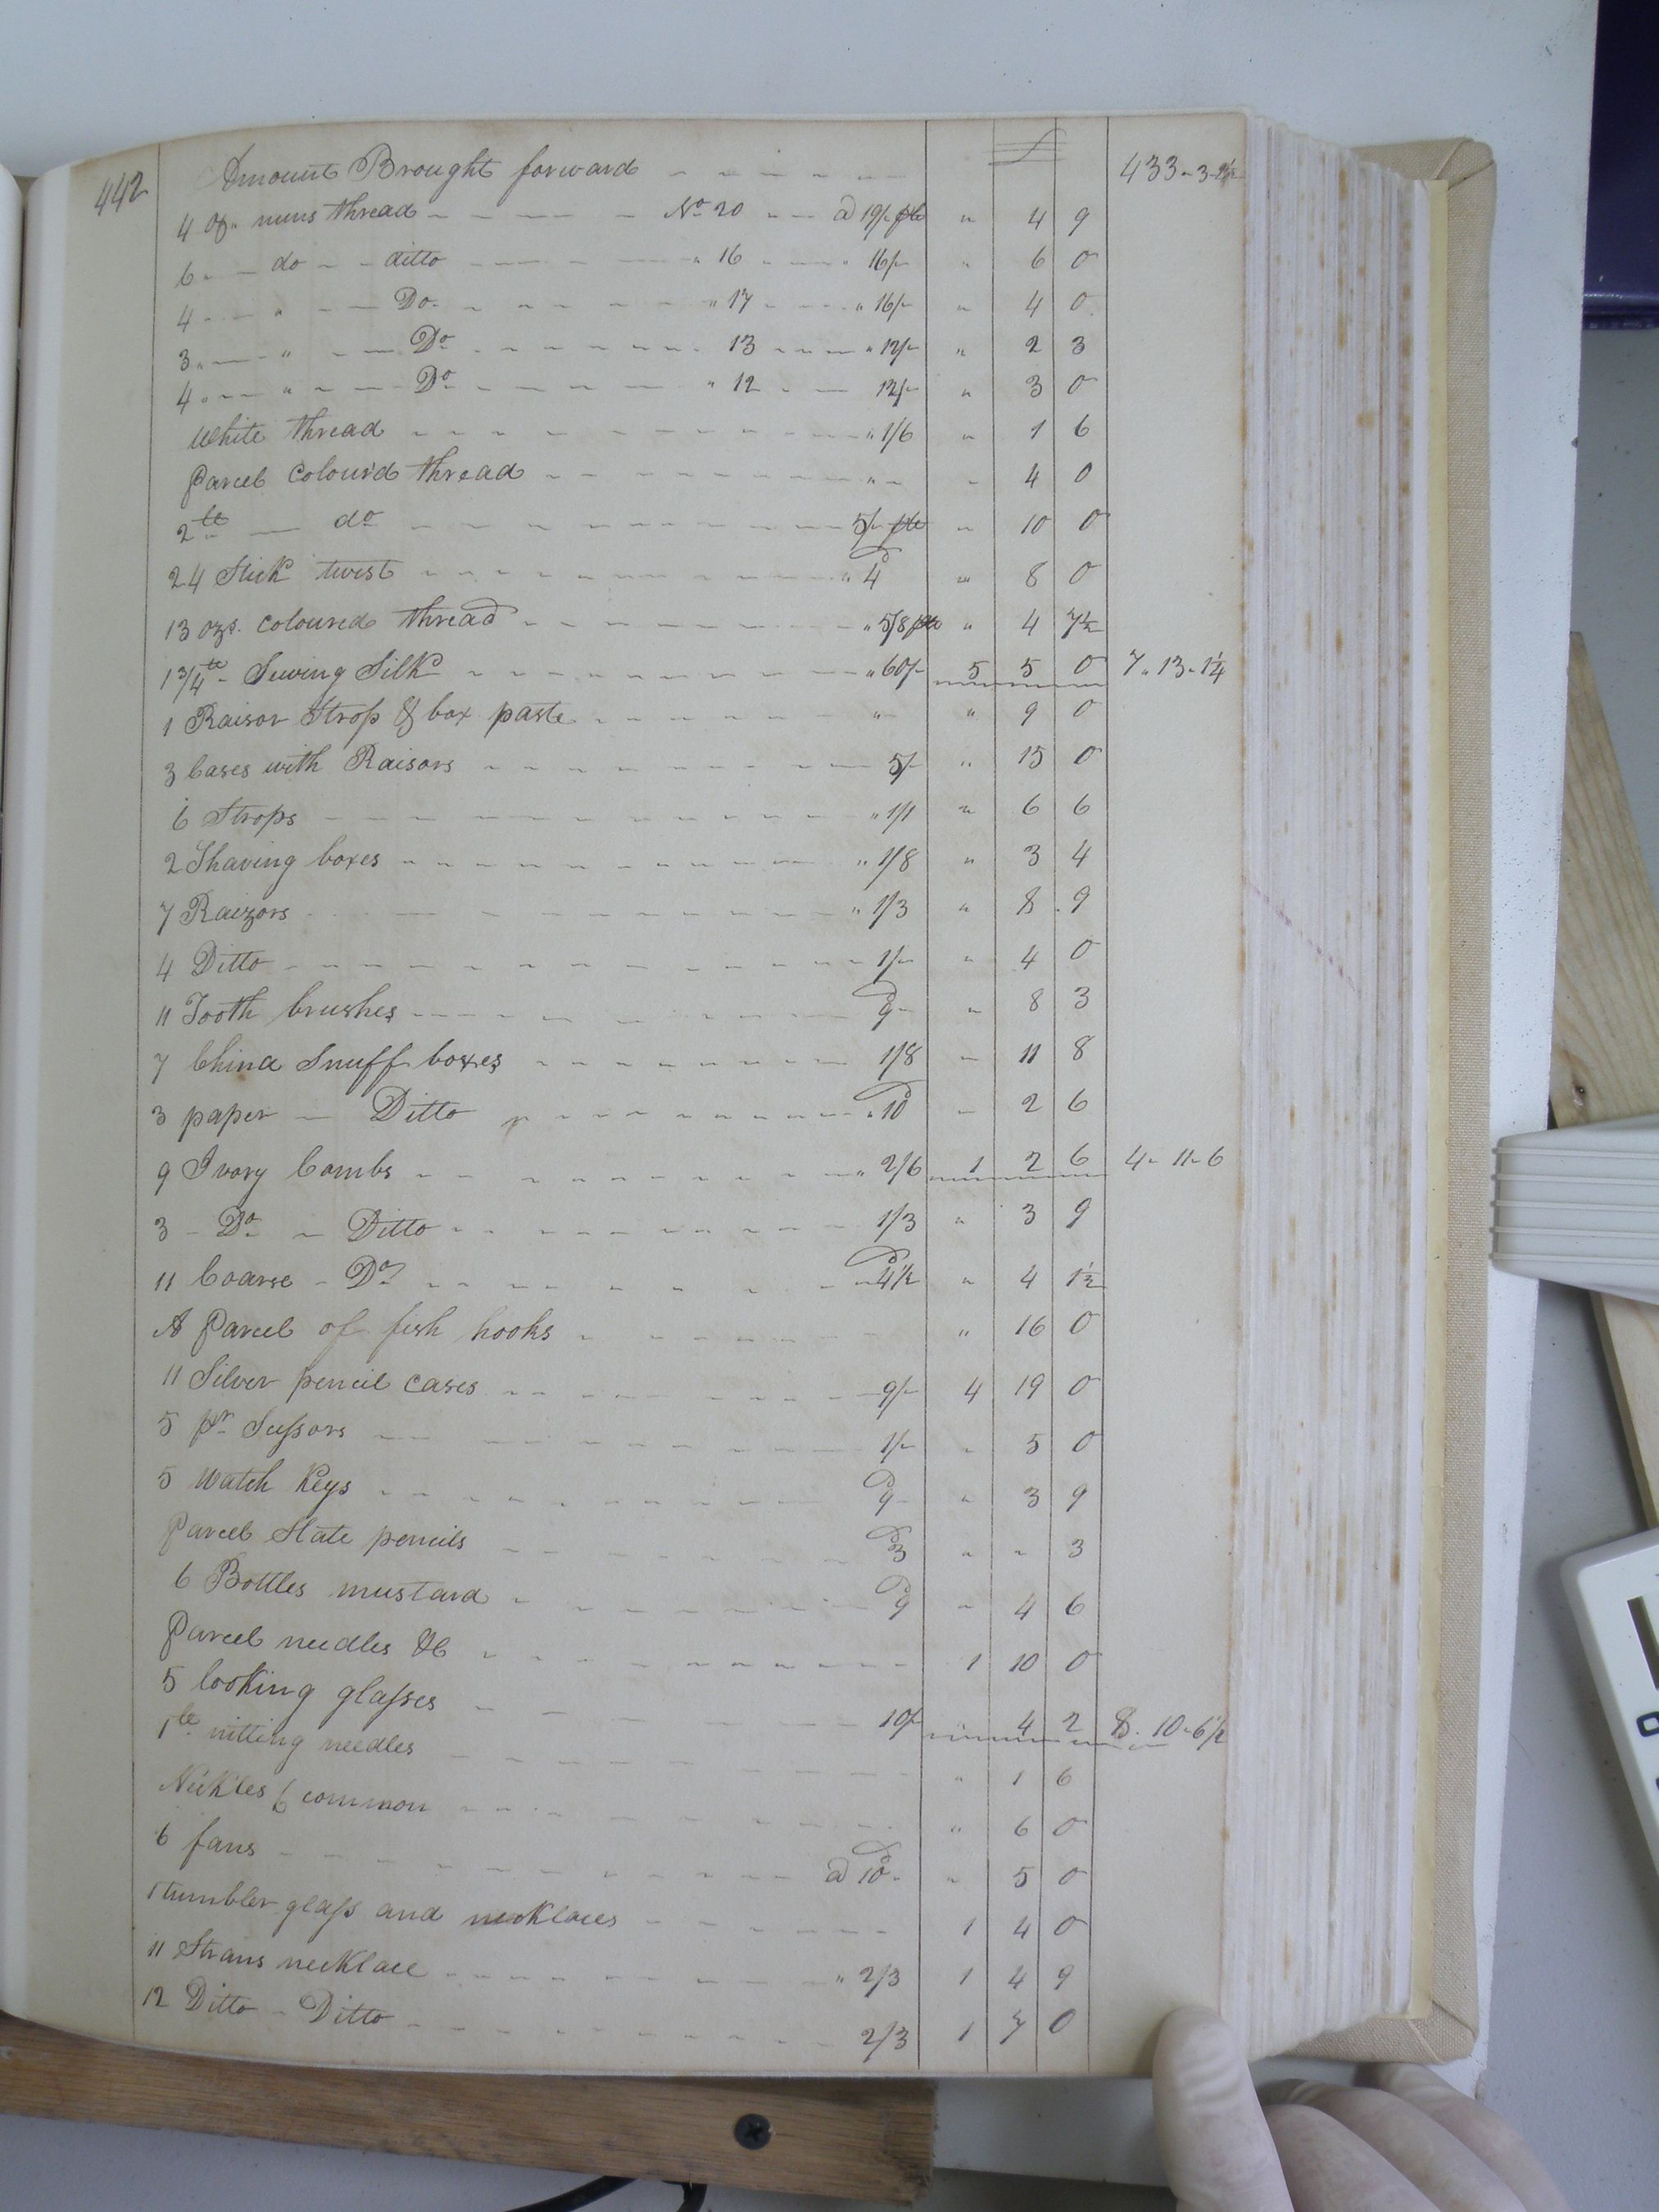 442
Amount Brought forward £ 433 - 3 -
4 oz. nuns thread No 20 @ 19/- plb " 4 9
6 " do ditto " 16 " 16/- " 6 0
4 " " Do " 17 " 16/- " 4 0
3 " " Do 13 " 12/- " 2 3
4 " " Do " 12 12/- " 3 0
White thread " 1/6 " 1 6
Parcel Colour'd thread " " 4 0
2 lb do 5/- plb " 10 0
24 Stick twist " 4d " 8 0
13 ozs. Coloured thread " 5/8 plb " 4 7½
1 3/4 lb Sewing Silk " 60/- 5 5 0 7 " 13 - 1¼
1 Raisor Strop & box paste " " 9 0
3 Cases with Raisors 5/- " 15 0
6 Strops " 1/1 " 6 6
2 Shaving boxes " 1/8 " 3 4
7 Raizors " 1/3 " 8 9
4 Ditto 1/- " 4 0
11 Tooth brushes 9d " 8 3
7 China Snuff boxes 1/8 " 11 8
3 paper Ditto " 10d " 2 6
9 Ivory Combs " 2/6 1 2 6 4 - 11 - 6
3 - Do - Ditto 1/3 " 3 9
11 Coarse - Do 4½d " 4 1½
A Parcel of fish hooks " 16 0
11 Silver pencil Cases 9/- 4 19 0
5 pr Scissors 1/- " 5 0
5 Watch Keys 9d " 3 9
Parcel Slate pencils 3d " " 3
6 Bottles mustard 9d " 4 6
Parcel needles &c 1 10 0
5 looking glasses 10d " 4 2 8 - 10 - 6½
1 lb nitting needles " 1 6
Nickles 6 common " 6 0
6 fans @ 10d " 5 0
1 tumbler glass and necklaces 1 4 0
11 Strans necklace " 2/3 1 4 9
12 Ditto - Ditto 2/3 1 7 0